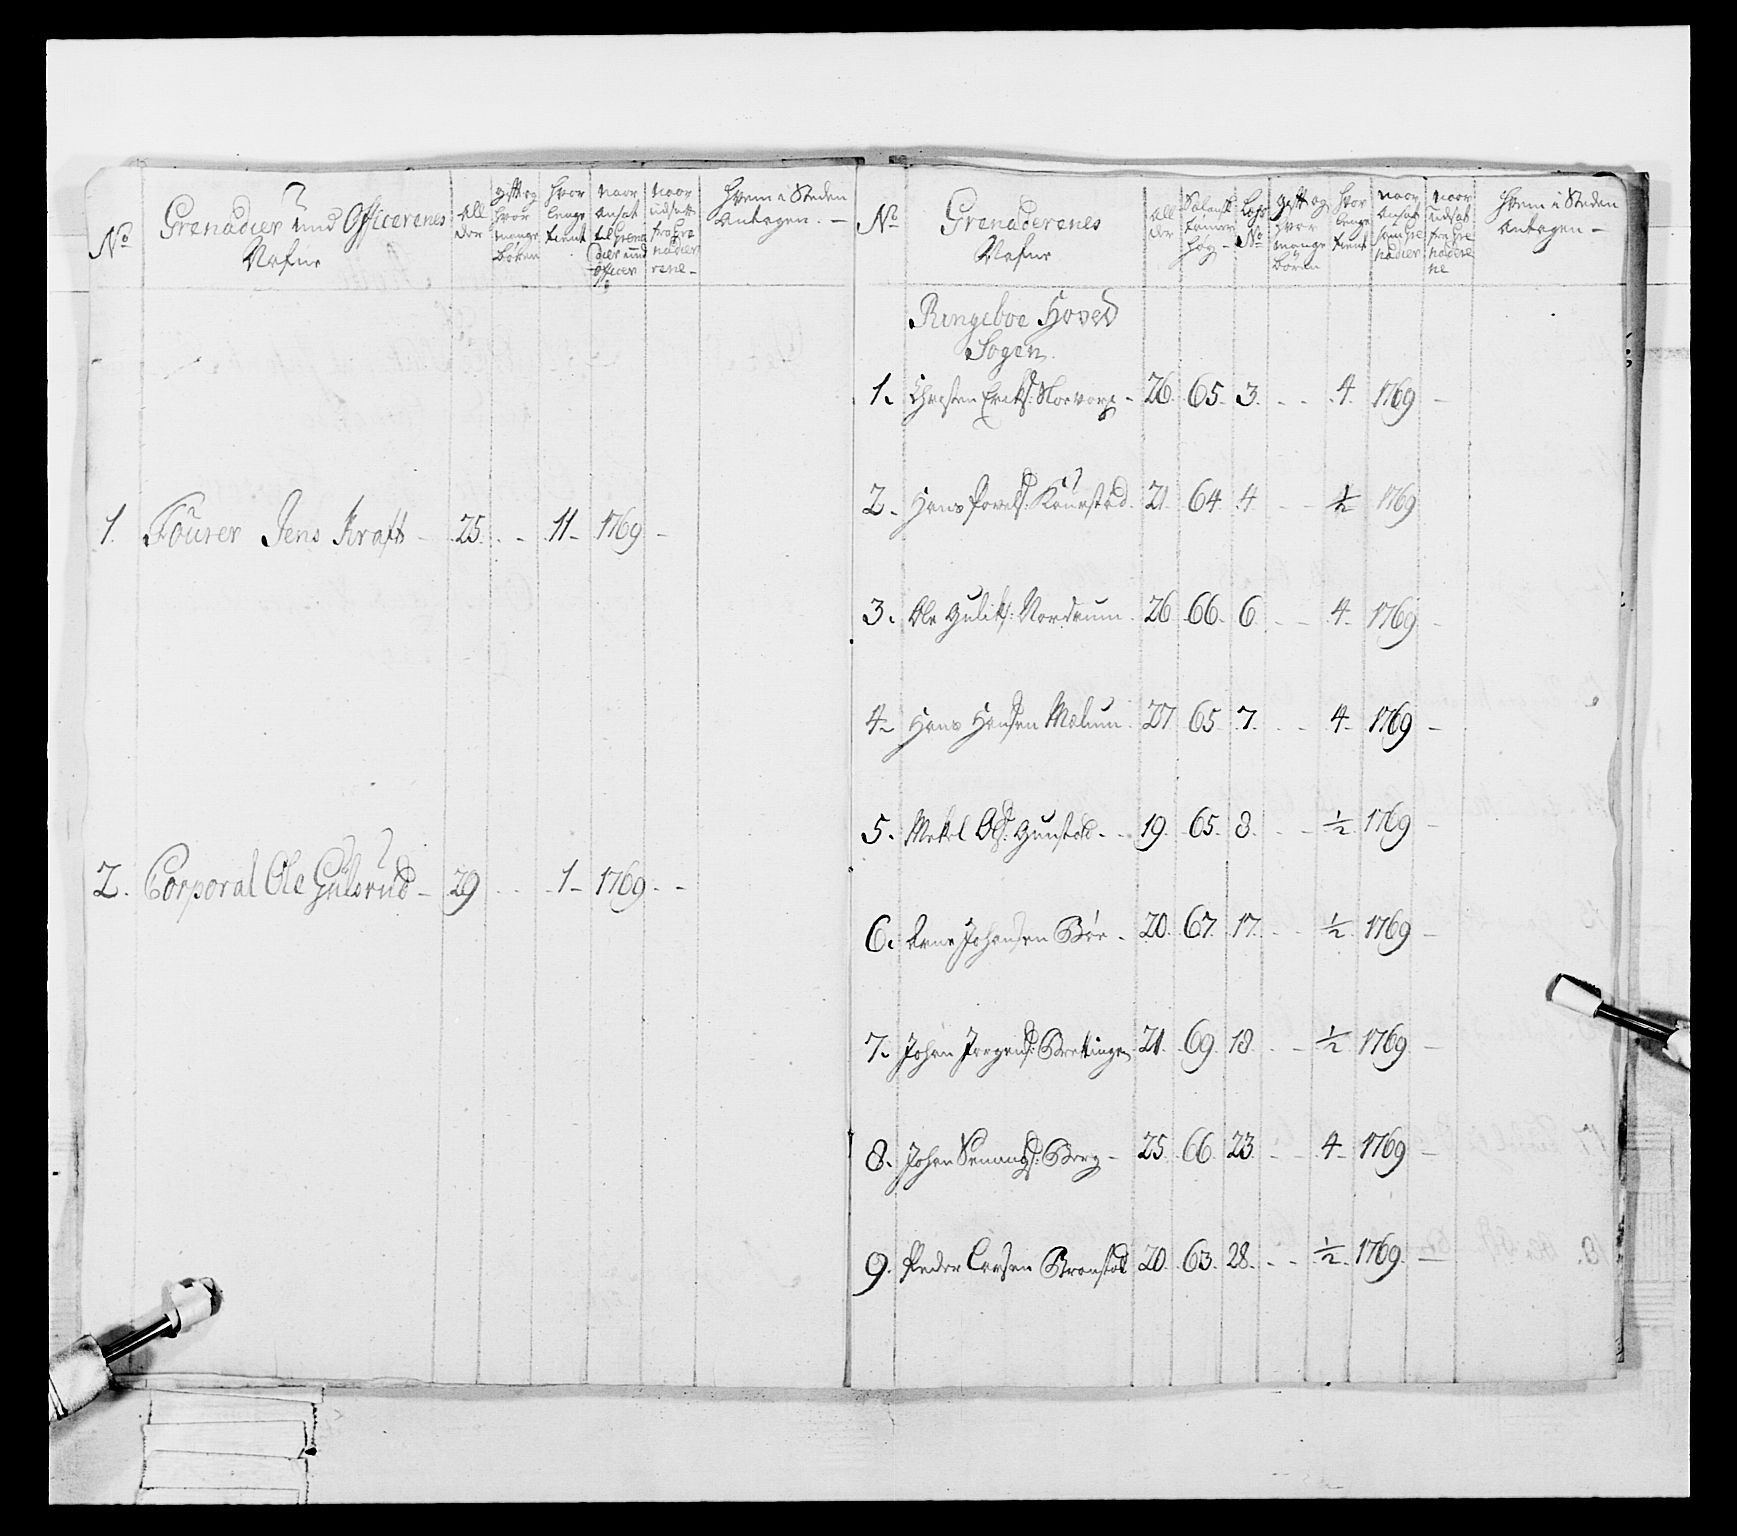 No
Grenadier und Officerenes
Nafne
All
der
gift og
hvor
mange
børen
hvor
lenge
tient
naar
ansat
til Grena
dier und
Officer
naar
udsatt
fra Gre
nadier
rene
Hvem i Steden
Antagen. —
1. Fourer Jens Kraft - 25. - - 11 - 1769 -
2. Corporal Ole Gulsrud - 29 - - 1 - 1769 - -
No
Grenaderenes
Nafne
All
der
høy
No
gift og
hvor
mange
børen
hvor
lenge
tient
naar
ansat
som Gre
nadier
naar
udsat
fra Gre
nadere
ne
Hvem i Steden
Antagen —
Ringeboe Hoved
Sogen.
1. Christen Eriks: - 26. 65. 3. - - 4. 1769 -
2. Hans Povels: 21. 64. 4. - - ½ 1769
3. Ole Guliks: Nordrum. 26. 66. 6. - - 4. 1769 -
4. Hans Hansen Mælum. 27. 65. 7. - - 4. 1769 -
5. Ols: Gunstad - 19. 65. 8. - - ½ 1769 -
6. Arne Johansen Bøe - 20. 67. 17. - - ½ 1769 -
7. Johan Jørgens: Brettinge 21. 69. 18. - - ½ 1769 -
8. Johan Berg - 25. 66. 23. - - 4. 1769 -
9. Peder Larsen 20. 63. 28. - - ½ 1769. -